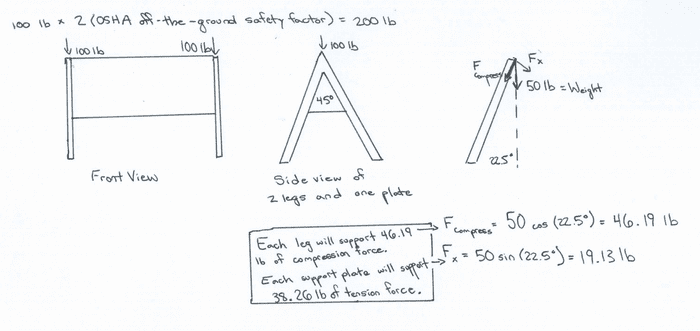 100 lb × 2 (OSHA off-the-ground safety factor) = 200 lb
100 lb
100 lb
Front View
100 lb
45°
Side view of
2 legs and one plate
F compress
Fx
50 lb = Weight
22.5°
Each leg will support 46.19
lb of compression force.
Each support plate will support
38.26 lb of tension force.
F compress = 50 cos (22.5°) = 46.19 lb
Fx = 50 sin (22.5°) = 19.13 lb